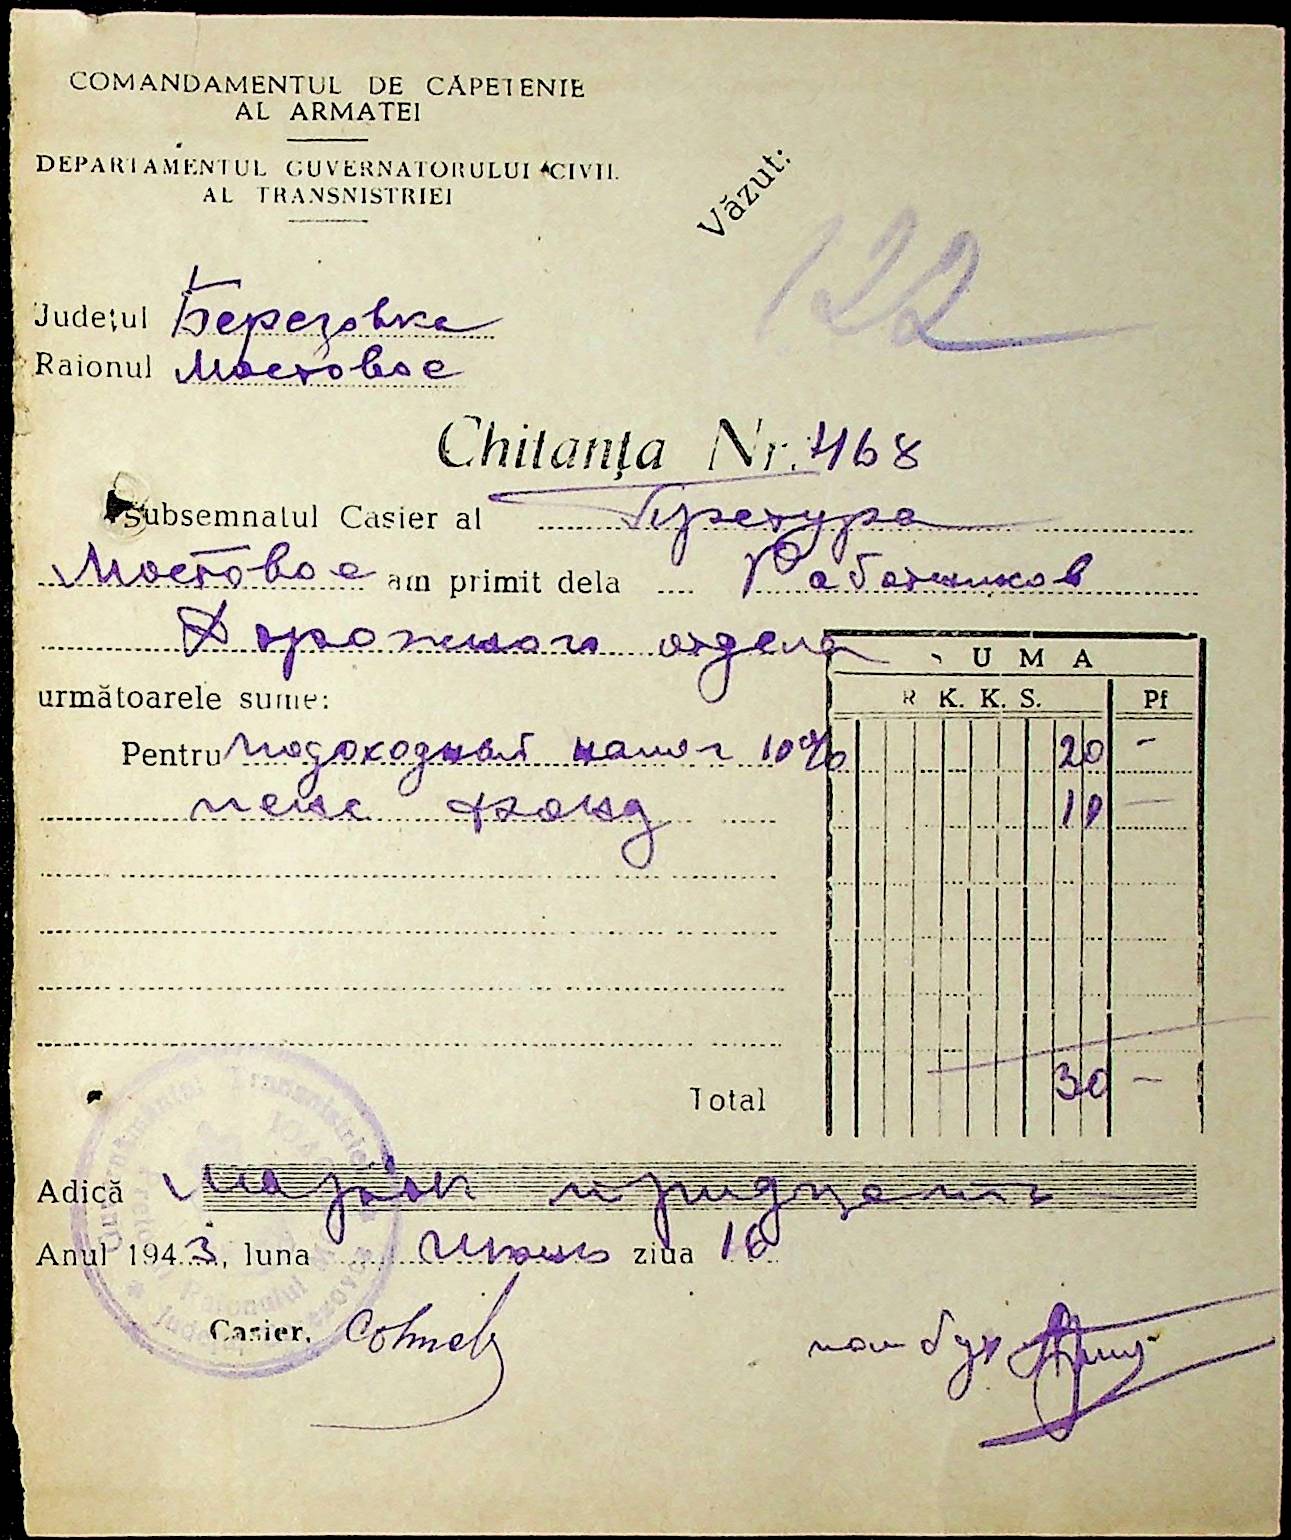 COMANDAMENTUL DE CĂPETENIE
AL ARMATEI
DEPARTAMENTUL GUVERNATORULUI CIVIL
AL TRANSNISTRIEI
Văzut:
122
Județul Березовка
Raionul Мостовое
Chitanța Nr. 468
Subsemnatul Casier al Претура
Мостовое am primit dela Работников
Дорожного отдела
SUMA
următoarele sume:
R. K. K. S. Pf
Pentru подоходный налог 10% 20 -
пенс фонд 10 -
Total 30 -
Adică марок тридцать
Anul 1943, luna Июнь ziua 16
Casier,
пом бух
Guvernământul Transnistriei
Pretura Raionului
Județul Berezovca